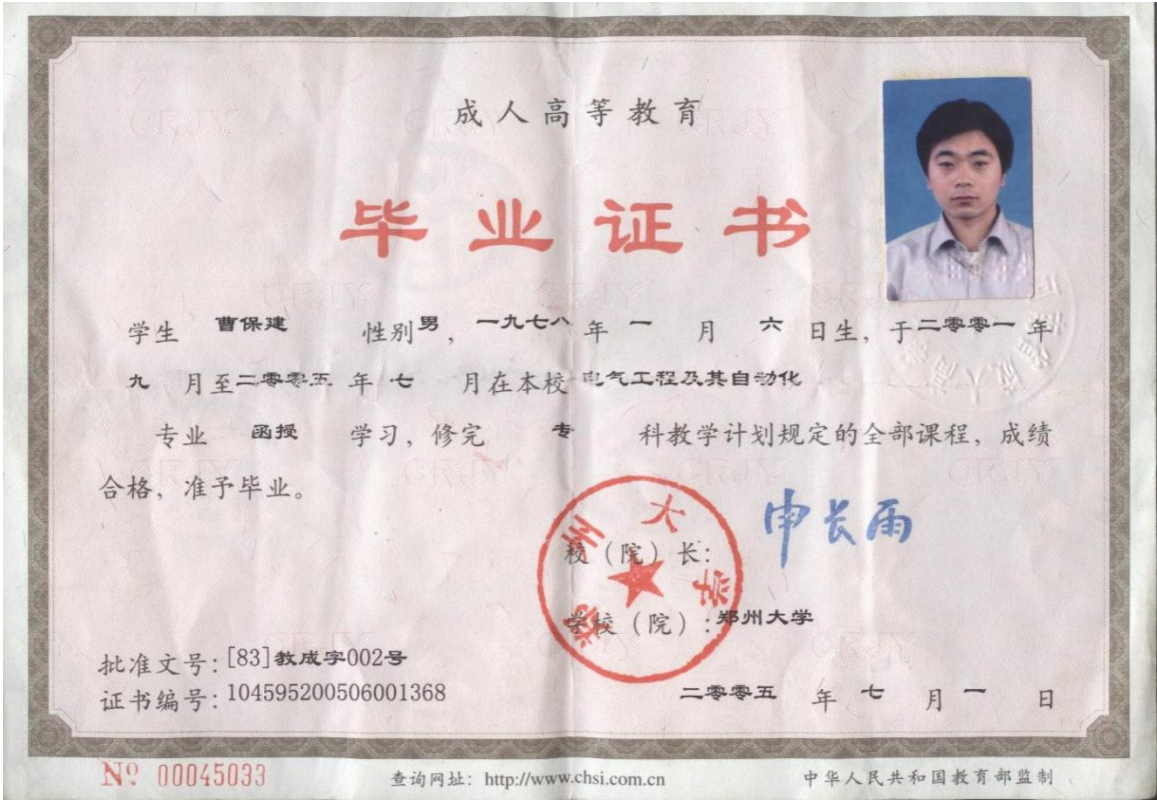 成人高等教育
毕业证书
学生 曹保建 性别男，一九七八年一月六日生，于二零零一年
九月至二零零五年七月在本校 电气工程及其自动化
专业 函授 学习，修完 专 科教学计划规定的全部课程，成绩
合格，准予毕业。
郑州大学
校（院）长：申长雨
学校（院）：郑州大学
批准文号：[83]教成字002号
证书编号：104595200506001368
二零零五年七月一日
№ 00045033
查询网址：http://www.chsi.com.cn
中华人民共和国教育部监制